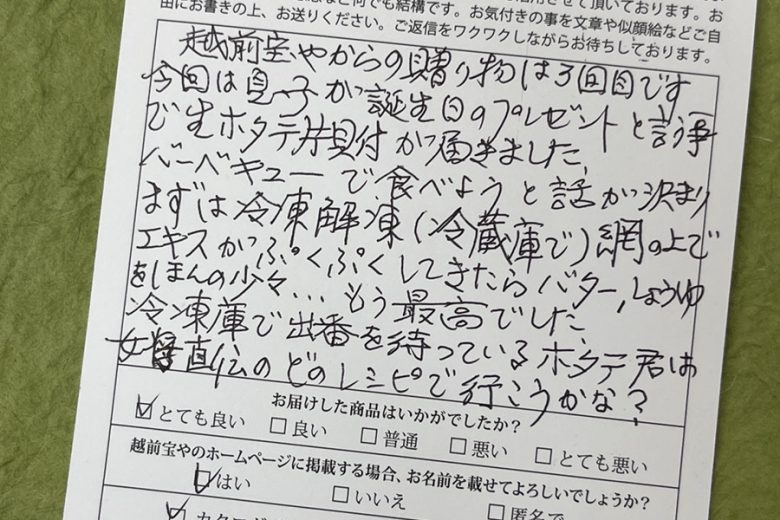 活用させて頂いております。お
など何でも結構です。お気付きの事を文章や似顔絵などご自
由にお書きの上、お送りください。ご返信をワクワクしながらお待ちしております。
越前宝やからの贈り物は3回目です
今回は息子が誕生日のプレゼントと言う事
で生ホタテ片貝付が届きました。
バーベキューで食べようと話が決まり
まずは冷凍解凍(冷蔵庫で)網の上で
エキスがぷくぷくしてきたらバター、しょうゆ
をほんの少々…もう最高でした
冷凍庫で出番を待っているホタテ君は
女将直伝のどのレシピで行こうかな?
お届けした商品はいかがでしたか?
☑とても良い □良い □普通 □悪い □とても悪い
越前宝やのホームページに掲載する場合、お名前を載せてよろしいでしょうか?
☑はい □いいえ □匿名で